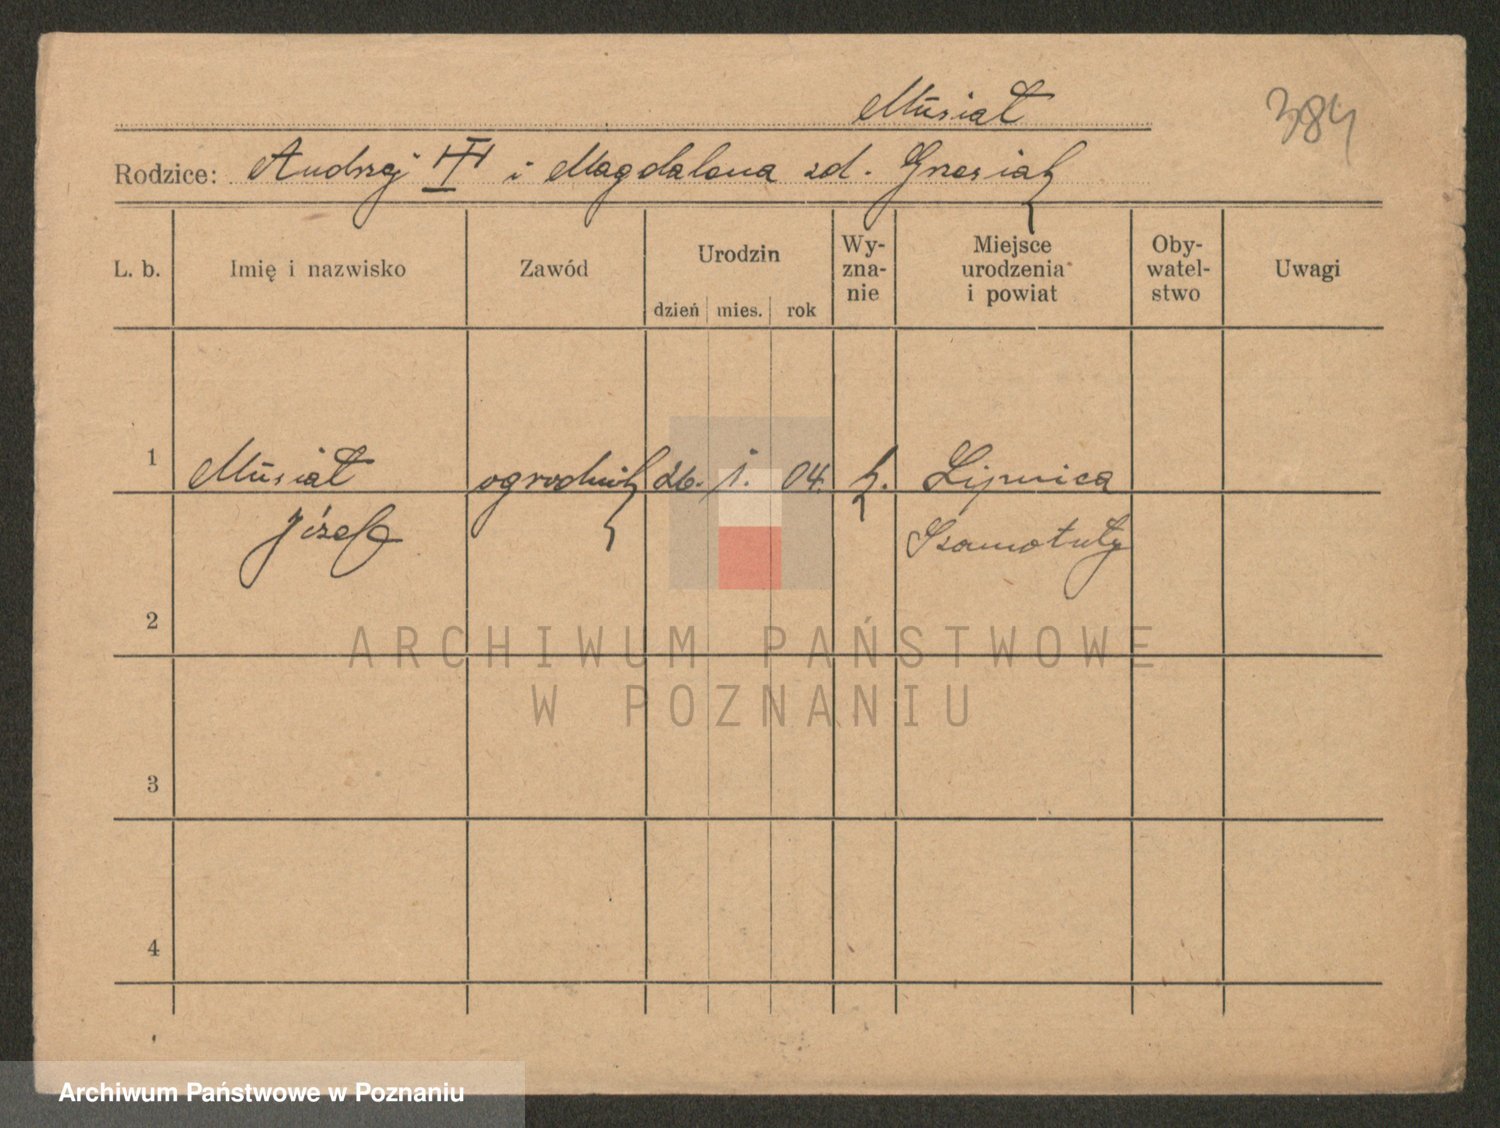 Musiał
384
Rodzice: Andrzej i Magdalena zd. Grzesiak
L. b. Imię i nazwisko Zawód Urodzin dzień mies. rok Wy-zna-nie Miejsce urodzenia i powiat Oby-watel-stwo Uwagi
1 Musiał ogrodnik 26. 1. 04. k. Lipnica
Józef Szamotuły
2
ARCHIWUM PAŃSTWOWE
W POZNANIU
3
4
Archiwum Państwowe w Poznaniu